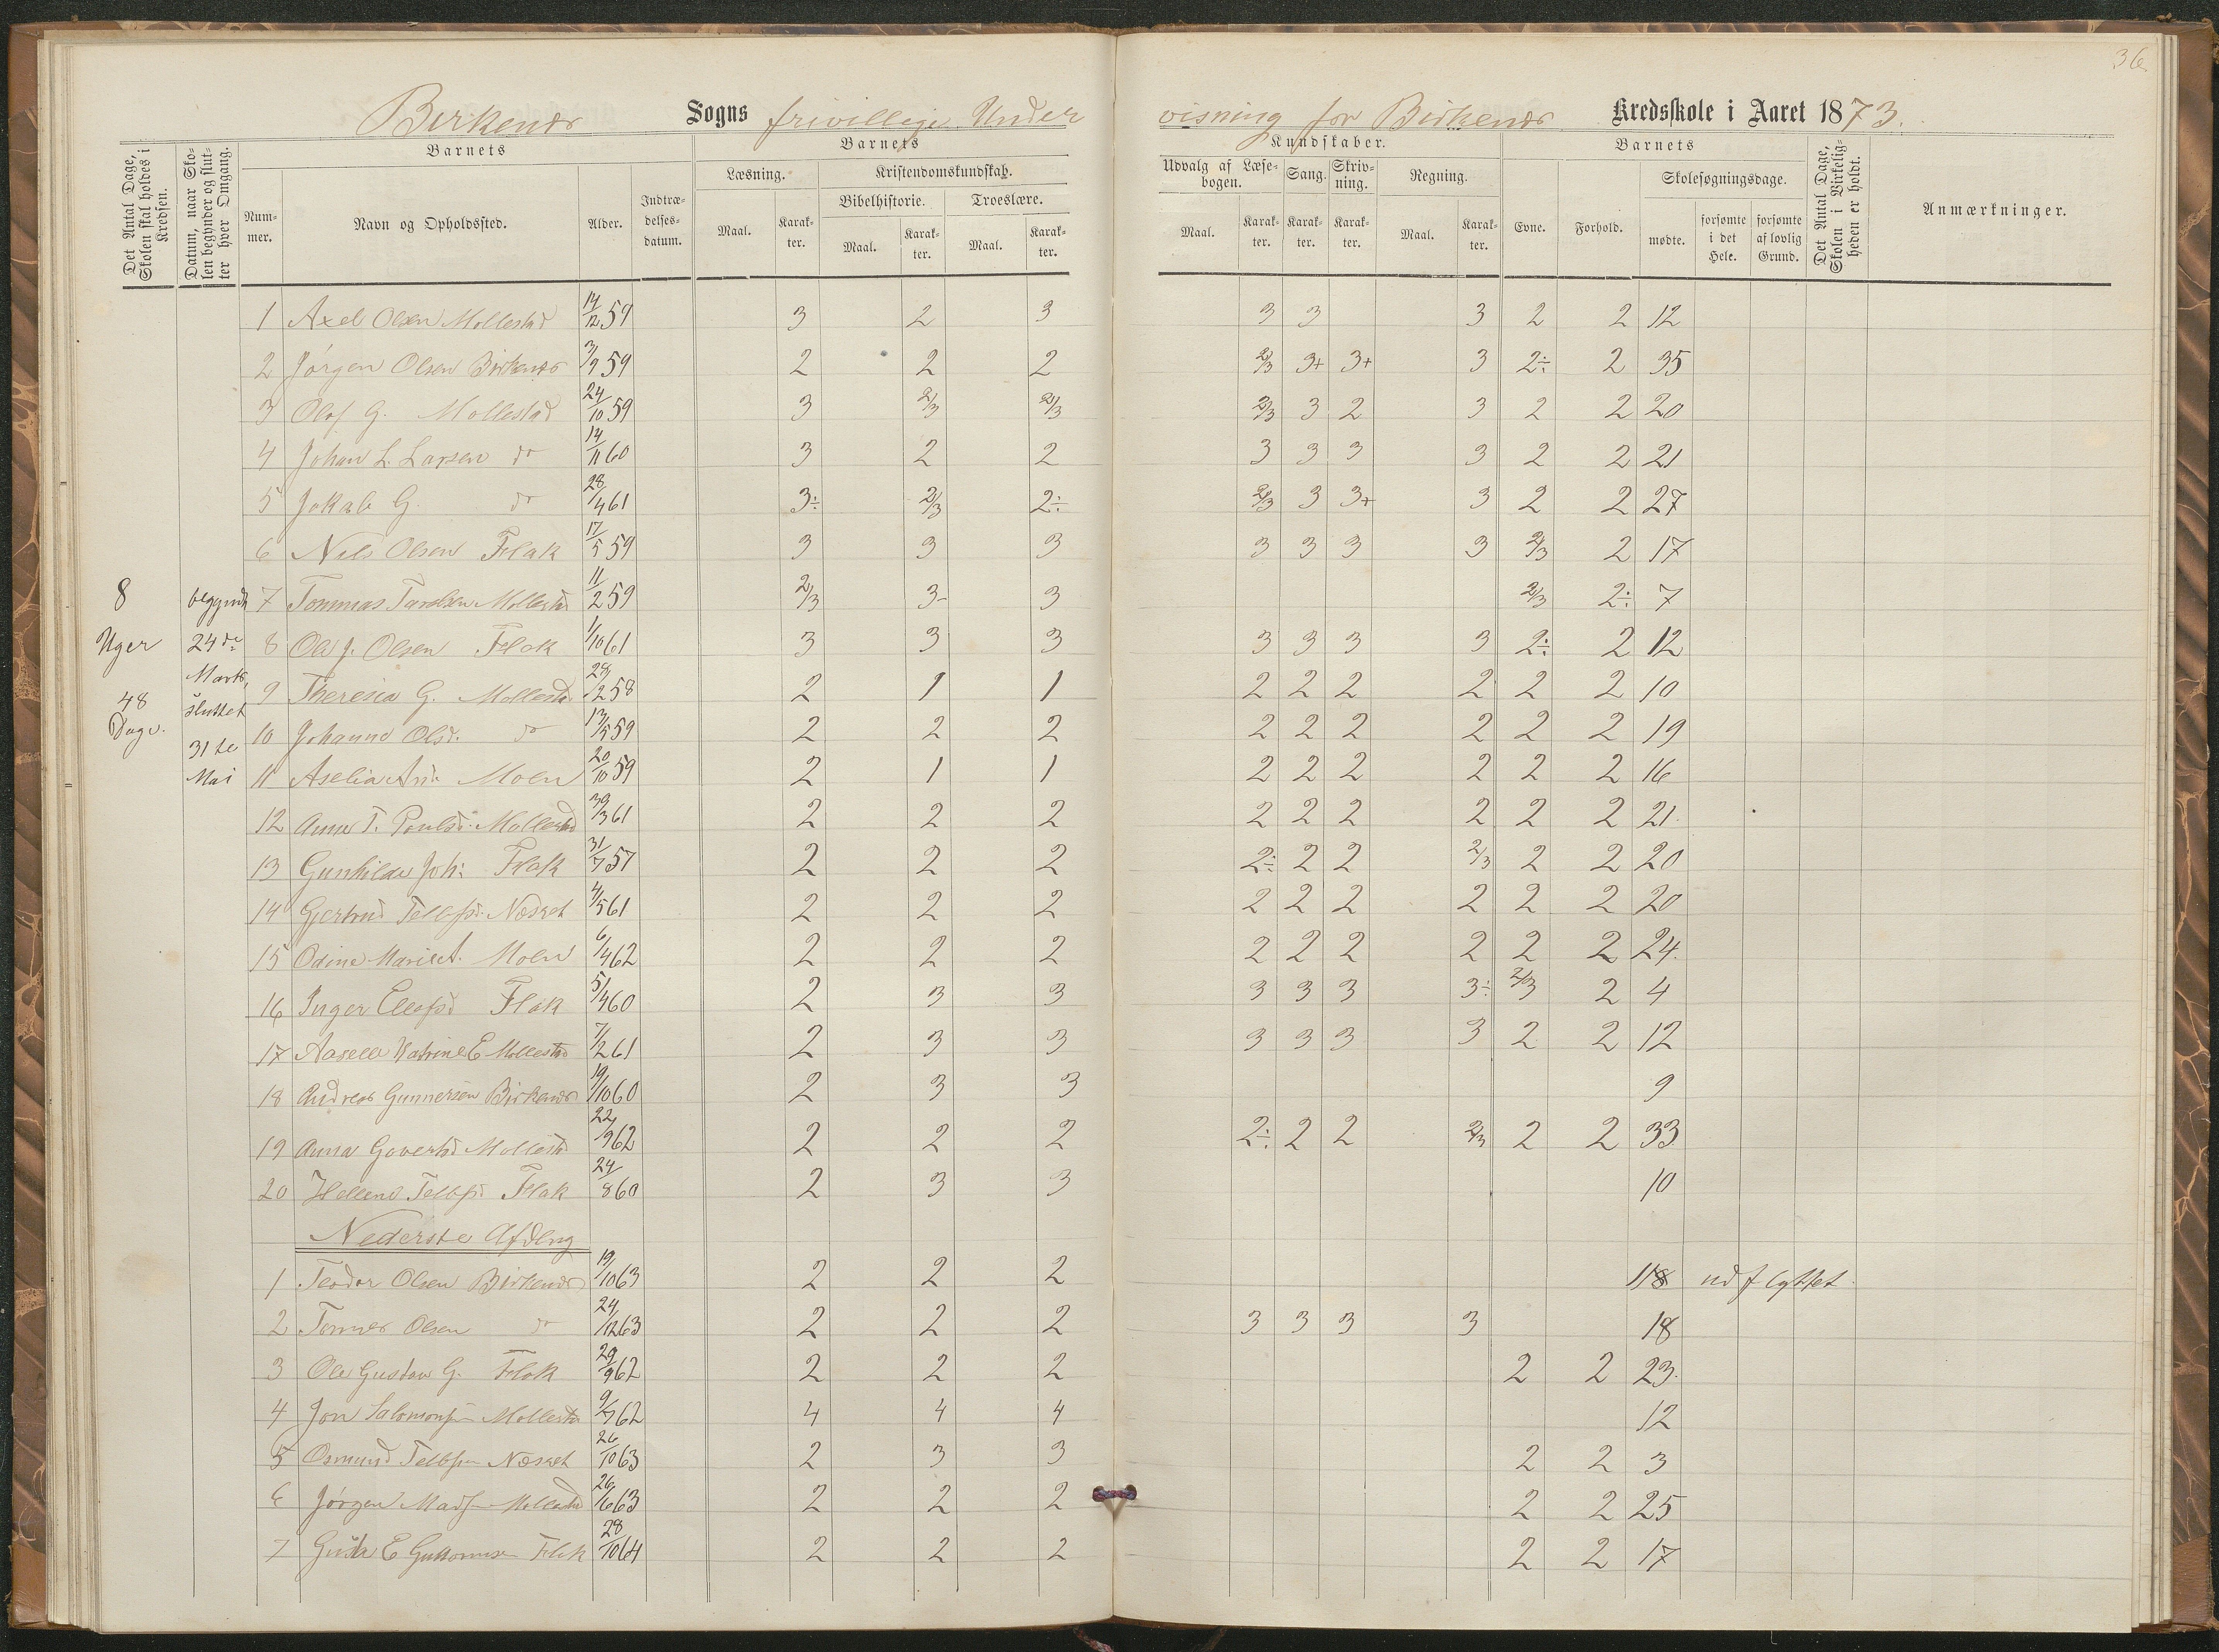 36
Birkenæs Sogns frivillige Undervisning for Birkenæs Kredsskole i Aaret 1873.
Det Antal Dage, Skolen skal holdes i Kredsen.
Datum, naar Skolen begynder og slutter hver Omgang.
Barnets
Nummer.
Navn og Opholdssted.
Alder.
Indtrædelsesdatum.
Barnets
Kundskaber.
Læsning.
Kristendomskundskab.
Bibelhistorie.
Troeslære.
Maal.
Karakter.
Maal.
Karakter.
Maal.
Karakter.
Udvalg af Læsebogen.
Sang.
Skrivning.
Regning.
Maal.
Karakter.
Karakter.
Karakter.
Maal.
Karakter.
Barnets
Evne.
Forhold.
Skolesøgningsdage.
mødte.
forsømte i det Hele.
forsømte af lovlig Grund.
Det Antal Dage, Skolen i Virkeligheden er holdt.
Anmærkninger.
8 Uger 48 Dage.
begyndt 24de Marts, sluttet 31te Mai
1 Axel Olsen Mollestad 14/12 59 3 2 3 3 3 3 2 2 12
2 Jörgen Olsen Birkenæs 3/9 59 2 2 2 2/3 3+ 3+ 3 2÷ 2 35
3 Olaf G. Mollestad 24/10 59 3 2/3 2/3 2/3 3 2 3 2 2 20
4 Johan L. Larsen do 14/11 60 3 2 2 3 3 3 3 2 2 21
5 Jakob G. do 28/4 61 3÷ 2/3 2÷ 2/3 3 3+ 3 2 2 27
6 Nils Olsen Flak 17/5 59 3 3 3 3 3 3 3 2/3 2 17
7 Tommas Mollestad 11/2 59 2/3 3- 3 2/3 2÷ 7
8 Ole J. Olsen Flak 1/10 61 3 3 3 3 3 3 3 2÷ 2 12
9 Theresia G. Mollestad 28/12 58 2 1 1 2 2 2 2 2 2 10
10 Johanne Olsd. do 13/5 59 2 2 2 2 2 2 2 2 2 19
11 Aselia And. Moen 20/10 59 2 1 1 2 2 2 2 2 2 16
12 Anne T. Poulsd. Mollestad 30/3 61 2 2 2 2 2 2 2 2 2 21.
13 Gunhilde Joh: Flak 31/7 57 2 2 2 2÷ 2 2 2/3 2 2 20
14 Gjertrud Tellefsd. Næset 4/5 61 2 2 2 2 2 2 2 2 2 20
15 Odine Marie A. Moen 6/4 62 2 2 2 2 2 2 2 2 2 24.
16 Inger Ellefsd Flak 5/4 60 2 3 3 3 3 3 3÷ 2/3 2 4
17 Katrine E Mollestad 7/2 61 2 3 3 3 3 3 3 2 2 12
18 Andreas Gunnersen Birkenæs 19/10 60 2 3 3 9
19 Anna Govertsd Mollestad 22/9 62 2 2 2 2÷ 2 2 2/3 2 2 33
20 Hellene Tellefsd Flak 24/8 60 2 3 3 10
Nederste Afdlng
1 Teodor Olsen Birkenæs 19/10 63 2 2 2 18 udflyttet.
2 Olsen do 24/12 63 2 2 2 3 3 3 3 18
3 Ole Gustav G. Flak 29/9 62 2 2 2 2 2 23.
4 Jon Salomonsen Mollestad 9/7 62 4 4 4 12
5 Osmund Tellefsen Næset 26/10 63 2 3 3 2 2 3
6 Jörgen Madsen Mollestad 26/6 63 2 2 2 2 2 25
7 E Guttormsen Flak 28/10 64 2 2 2 2 2 17